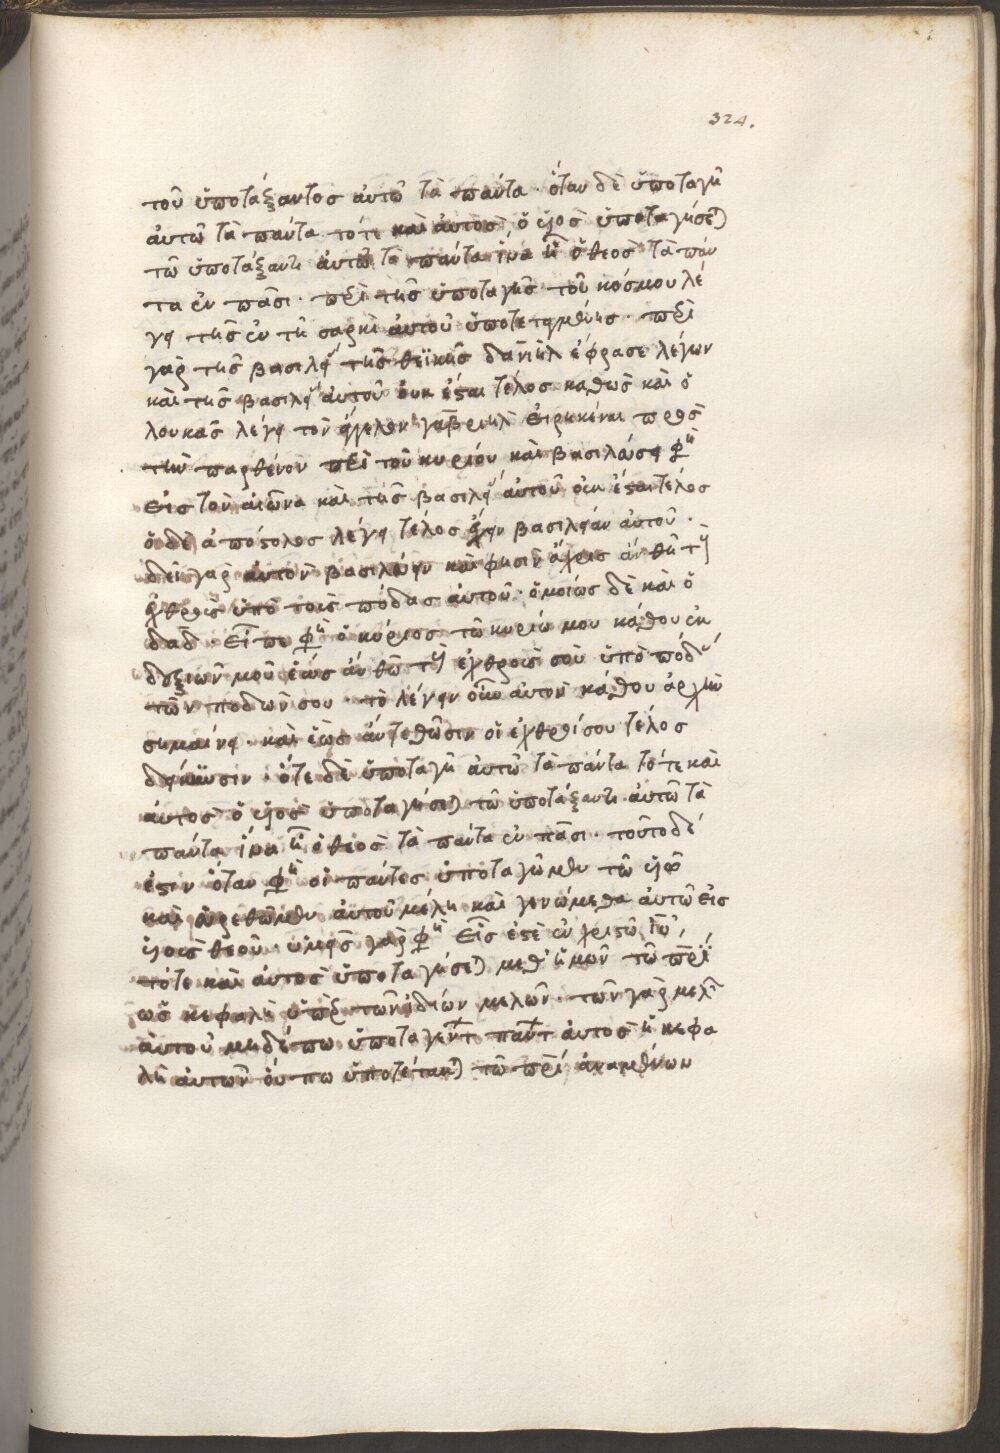 324.
τοῦ ὑποτάξαντος αὐτῶ τὰ πάντα · ὅταν δὲ ὑποταγῆ
αὐτῶ τὰ πάντα τότε καὶ αὐτὸς ὁ υἱὸς ὑποταγήσε)
τῶ ὑποτάξαντι αὐτῶ τὰ πάντα ἵνα ἦ ὁ θεὸς τὰ πάν
τα ἐν πᾶσι · περὶ τῆς ὑποταγῆς τοῦ κόσμου λέ
γει τῆς ἐν τῆ σαρκὶ αὐτοῦ ὑποτεταγμένης · περὶ
γὰρ τῆς βασιλεί τῆς θεϊκῆς δανιὴλ ἔφρασε λέγων
καὶ τῆς βασιλεί αὐτοῦ οὐκ ἔσται τέλος καθὼς καὶ ὁ
λουκᾶς λέγει τὸν ἄγγελον γαβριὴλ εἰρηκέναι πρὸς
τὴν παρθένον περὶ τοῦ κυρίου καὶ βασιλεύσει φη
εἰς τὸν αἰῶνα καὶ τῆς βασιλεί αὐτοῦ οὐκ ἔσται τέλος
ὁ δὲ ἀπόστολος λέγει τέλος ἔχειν βασιλείαν αὐτοῦ ·
δεῖ γὰρ αὐτὸν βασιλεύειν καὶ φησὶν ἄχρις ἂν θῆ τοὺ
ἐχθροὺς ὑπὸ τοὺς πόδας αὐτοῦ · ὁμοίως δὲ καὶ ὁ
δαδ · εἶπε φη ὁ κύριος τῶ κυρίω μου κάθου ἐκ
δεξιῶν μου ἕως ἂν θῶ τοὺ ἐχθρούς σου ὑπὸ πόδι
τῶν ποδῶν σου · τὸ λέγειν οὖν αὐτὸν κάθου ἀρχὴν
σημαίνει · καὶ ἕως ἂν τεθῶσιν οἱ ἐχθροί σου τέλος
δείκνυσιν · ὅτε δὲ ὑποταγῆ αὐτῶ τὰ πάντα τότε καὶ
αὐτὸς ὁ υἱὸς ὑποταγήσε) τῶ ὑποτάξαντι αὐτῶ τὰ
πάντα ἵνα ἦ ὁ θεὸς τὰ πάντα ἐν πᾶσι · τοῦτο δέ
ἐστιν ὅταν φη οἱ πάντες ὑποταγῶμεν τῶ υἱῶ
καὶ εὑρεθῶμεν αὐτοῦ μέλη καὶ γενώμεθα αὐτῶ εἰς
υἱοὺς θεοῦ · ὑμεῖς γὰρ φη εἷς ἐστὲ ἐν χριστῶ ἰῦ,
τότε καὶ αὐτὸς ὑποταγήσε) μεθ' ἡμῶν τῶ πρι
ὡς κεφαλὴ ὑπὲρ τῶν ἰδίων μελῶν · τῶν γὰρ μελ
αὐτοῦ μηδέπω ὑποταγέντ πάντ αὐτὸς ἡ κεφα
λὴ αὐτῶν οὔπω ὑποτέτακ) τῶ πρι ἀναμένων